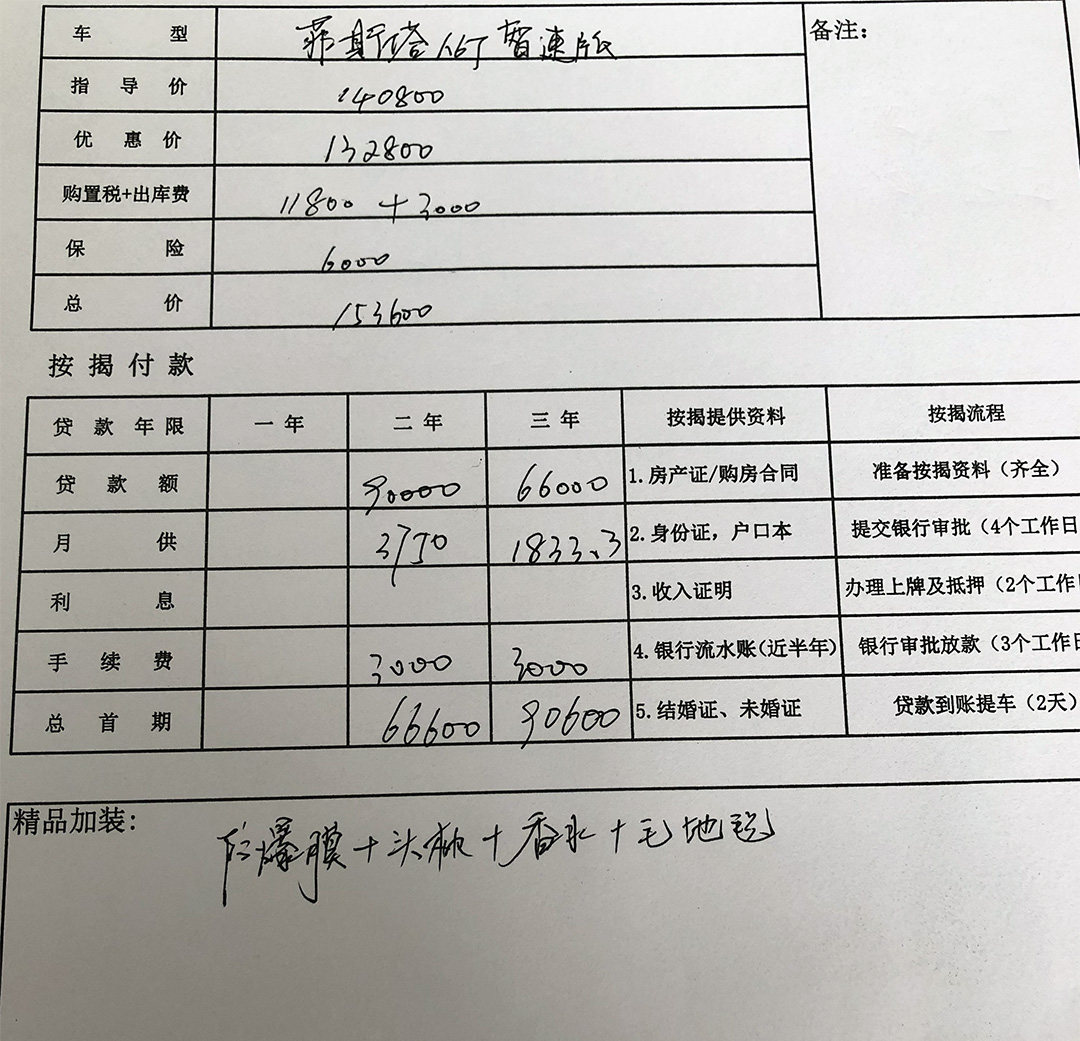 车型 菲斯塔1.6T智速版 备注:
指导价 140800
优惠价 132800
购置税+出库费 11800 + 3000
保险 6000
总价 153600
按揭付款
贷款年限 一年 二年 三年 按揭提供资料 按揭流程
贷款额 90000 66000 1.房产证/购房合同 准备按揭资料（齐全）
月供 3750 1833.3 2.身份证，户口本 提交银行审批（4个工作日
利息 3.收入证明 办理上牌及抵押（2个工作
手续费 3000 3000 4.银行流水账(近半年) 银行审批放款（3个工作日
总首期 66600 90600 5.结婚证、未婚证 贷款到账提车（2天）
精品加装:
防爆膜＋头枕＋香水＋毛地毯